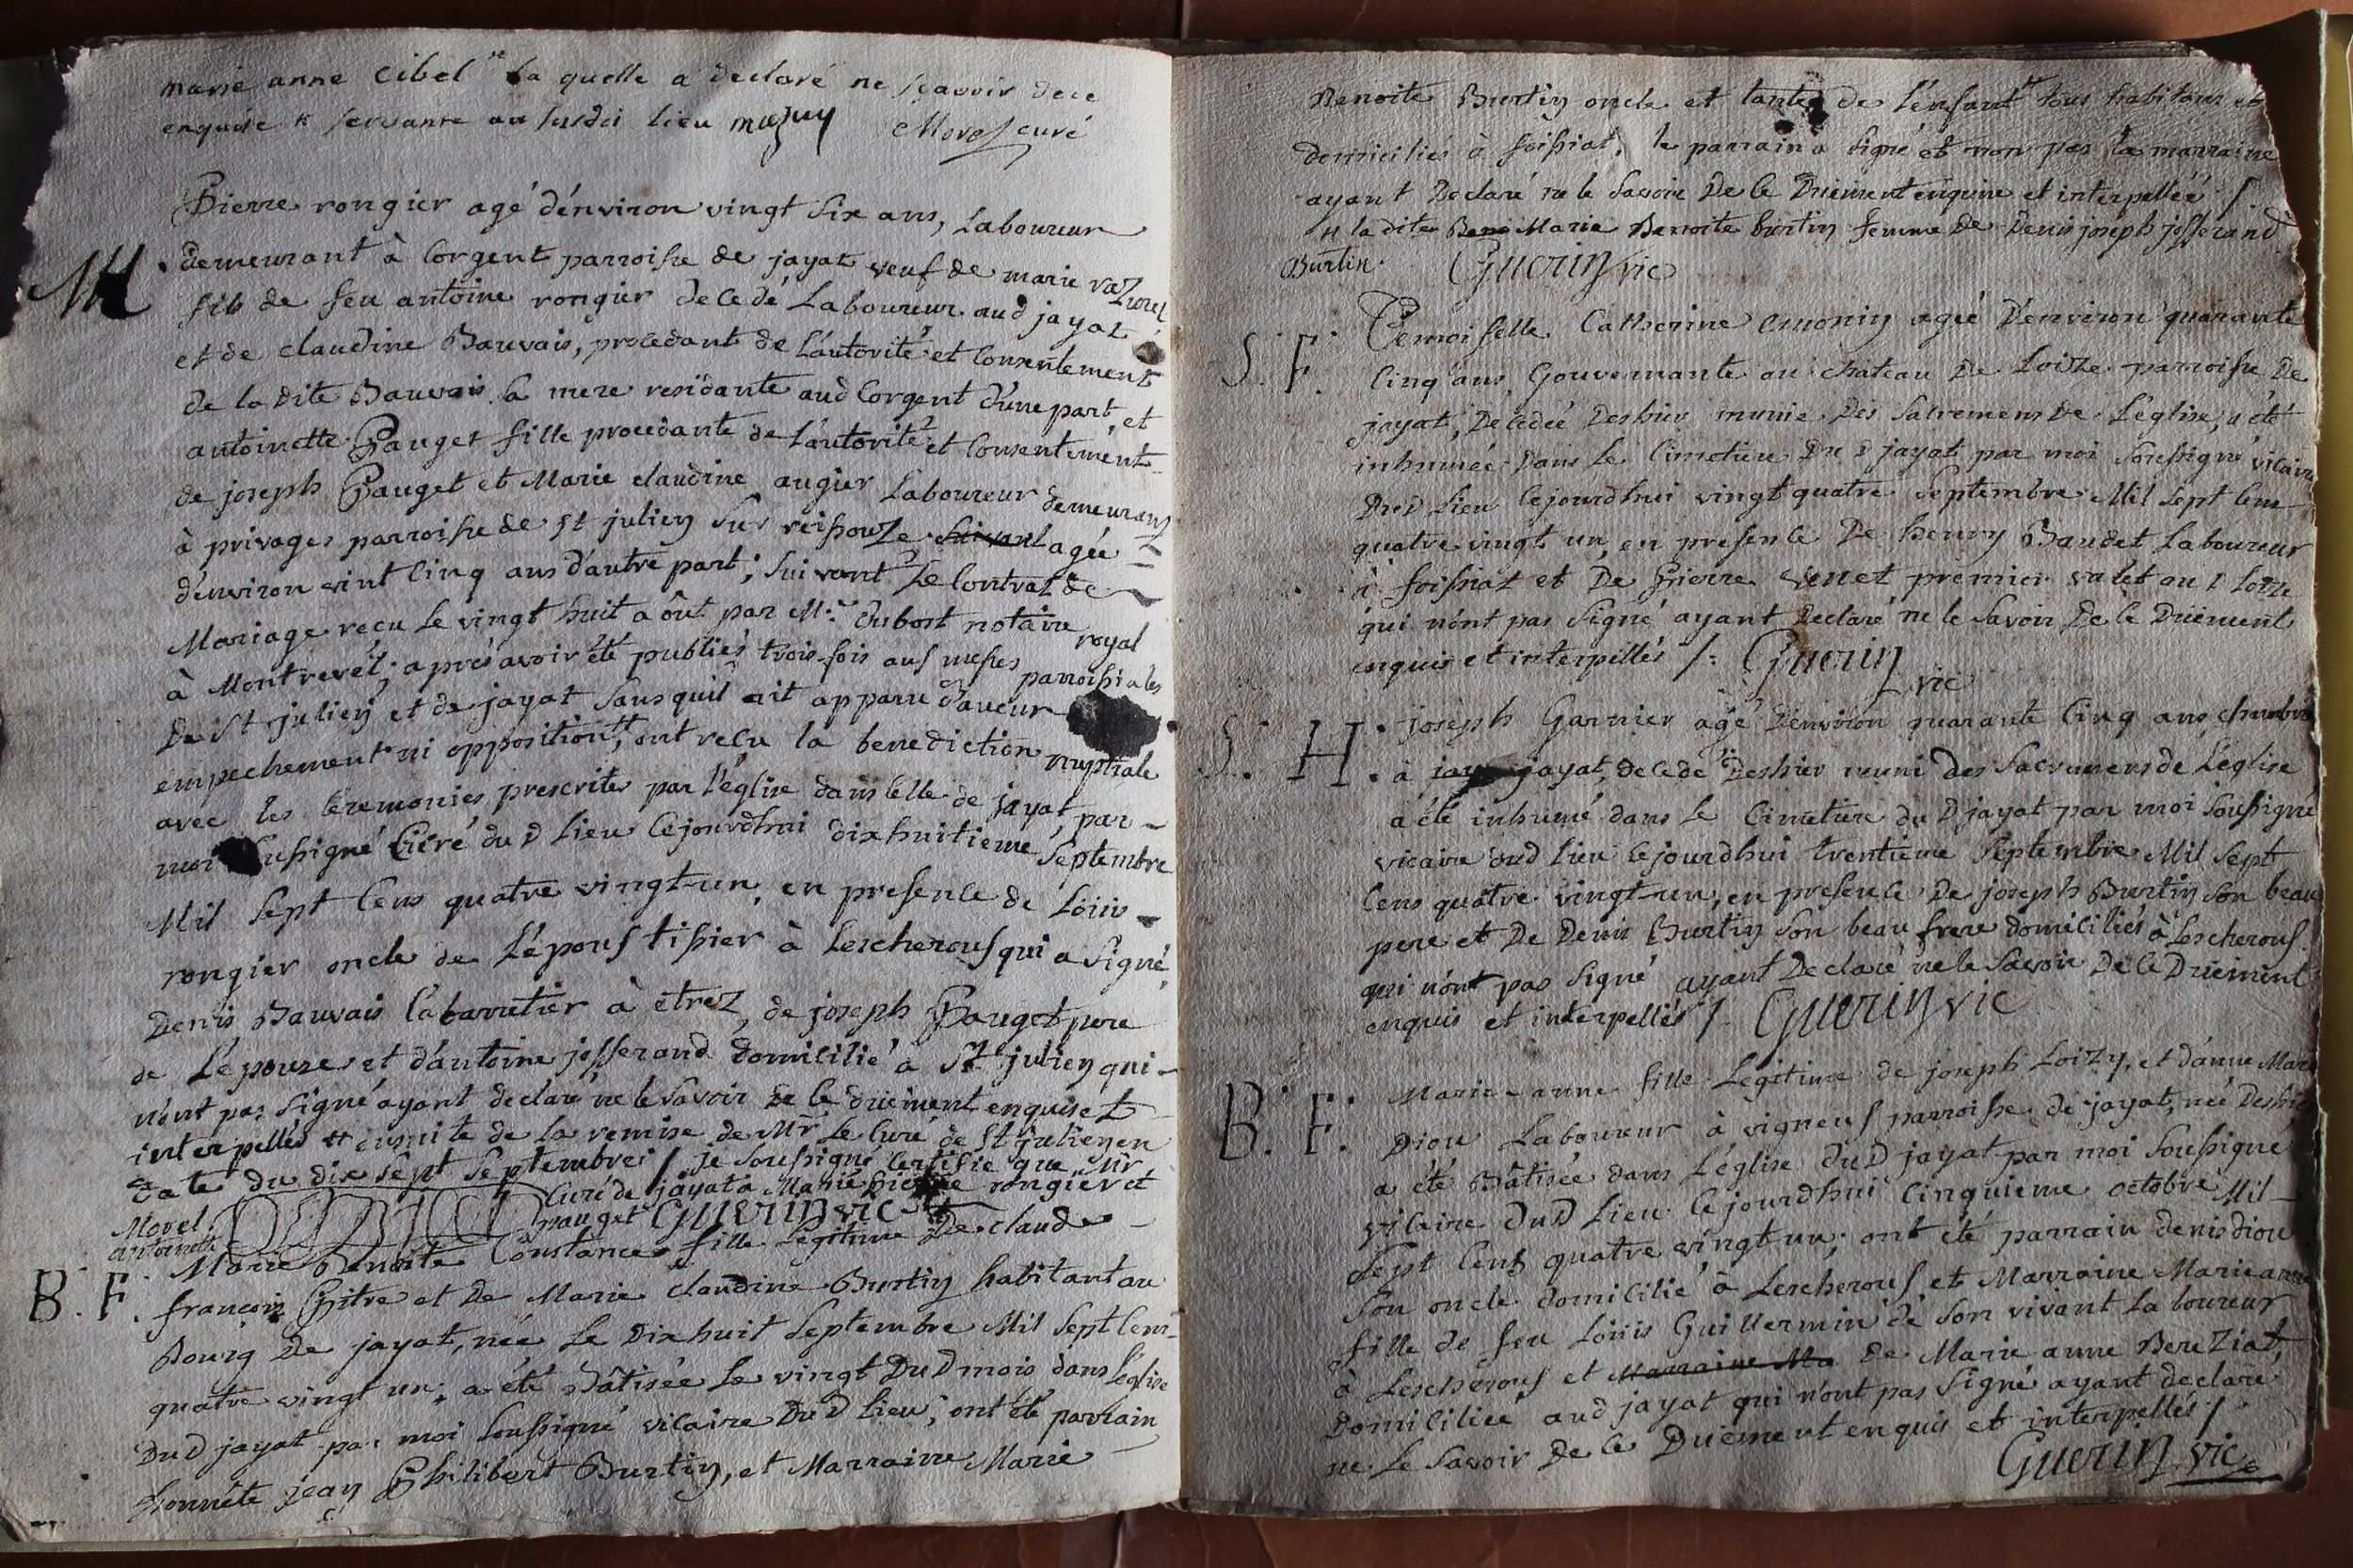 marie anne Cibel # la quelle a declaré ne sçavoir dece
enquise # servante au susdit lieu mazuy Morel curé
Pierre rongier agé d'énviron vingt six ans, Laboureur
M demeurant à Corgent parroisse de jayat veuf de marie vazurel
fils de feu antoine rongier decedé Laboureur aud jayat
et de claudine Bauvais, procedant de l'autorité et Consentement
de la dite Bauvais sa mere residante aud Corgent d'une part, et
antoinette Pauget fille procedante de l'autorité et Consentement
de joseph Pauget et Marie claudine augier Laboureur demeurans
à privages parroisse de st julien sur reissouze suivant agée
d'énviron vint cinq ans d'autre part; suivant le Contrat de
Mariage recu le vingt huit août par Mr. Dubost notaire royal
à Montrevel; aprés avoir été publiés trois fois aus messes parroissiales
De st julien et de jayat sans quil ait apparu d'aucun
empechement ni opposition #, ont recu la benediction nuptiale
avec les Ceremonies prescrites par l'église dans celle de jayat par
moi soussigné Curé du D lieu Cejourdhui dixhuitieme Septembre
Mil sept Cens quatre vingt-un, en presence de Loüis
rongier oncle de L'épous tissier à Lescherous qui a signé,
Denis Bauvais Cabarretier à etrez, de joseph Pauget pere
de L'épouze et d'antoine josserand domicilié à St julien qui
n'ont pas signé ayant declaré ne le savoir de ce düement enquis et
interpellés # ensuite de la remise de Mr le Curé de St julien en
date du dix sept septembre / je soussigné Certifie que Mr
Morel Curé de jayat a Marié pierre rongier et
antoinette pauget Guerin vic
Marie Benoite Constance fille Légitime De claude
B. F. françois Pitre et De Marie claudine Burtin habitant au
Bourg De jayat, née Le Dixhuit Septembre Mil Sept Cens
quatre vingt un; a été Bâtisée Le vingt Du D mois dans l'église
Du D jayat par moi soussigné vicaire Du D lieu; ont été parrain
honnête jean Philibert Burtin, et Marraine Marie
Benoite Burtin oncle et tante de L'énfant # tous habitans et
domiciliés à foissiat, le parrain a signé et non pas la marraine
ayant Declaré ne le savoir De ce Düement enquise et interpellée /
# la dite Bene Marie Benoite burtin femme de Denis joseph josserand
Burtin. Guerin vic
Demoiselle Catherine Cuvonin agée D'énviron quarante
S. F. Cinq ans Gouvernante au château De Loize parroisse De
jayat, Décédée Deshier munie Des sacremens De L'église, a été
inhumée Dans le Cimetiere Du D jayat par moi soussigné vicaire
Du D Lieu Cejourdhui vingt quatre Septembre Mil Sept Cens
quatre vingt un, en presence De henry Baudet Laboureur
à foissiat et De Pierre venet premier valet au D Loize
qui n'ont pas signé ayant Declaré ne le savoir De ce Düement
enquis et interpellés /: Guerin vic
S. H. joseph Garnier agé D'énviron quarante Cinq ans
à jay jayat, decedé Deshier muni Des Sacremens de L'église
a été inhumé dans le Cimetiere du D jayat par moi soussigné
vicaire dud lieu Cejourdhui trentieme Septembre Mil Sept
Cens quatre vingt-un, en presence De joseph Burtin son beau
pere et De Denis Burtin son beau frere domiciliés à Lescherous
qui n'ont pas signé ayant Declaré ne le savoir De Ce Düement
enquis et interpellés /. Guerin vic
Marie-anne fille Légitime de joseph Loizy, et d'anne Marie
B. F. Diou Laboureur à vigneus parroisse de jayat, née Deshier
a été Bâtisée dans L'église DuD jayat par moi soussigné
vicaire Du D Lieu Cejourdhui Cinquieme octobre Mil
Sept Cens quatre vingt un; ont été parrain denis diou
son oncle domicilié à Lescherous et Marraine Marie anne
fille de feu Loüis Guillermin de son vivant Laboureur
à Lescherous et Marraine Ma De Marie anne Bereziat,
Domiciliée aud jayat qui n'ont pas signé ayant declaré
ne le savoir De Ce Düement enquis et interpellés /
Guerin vic